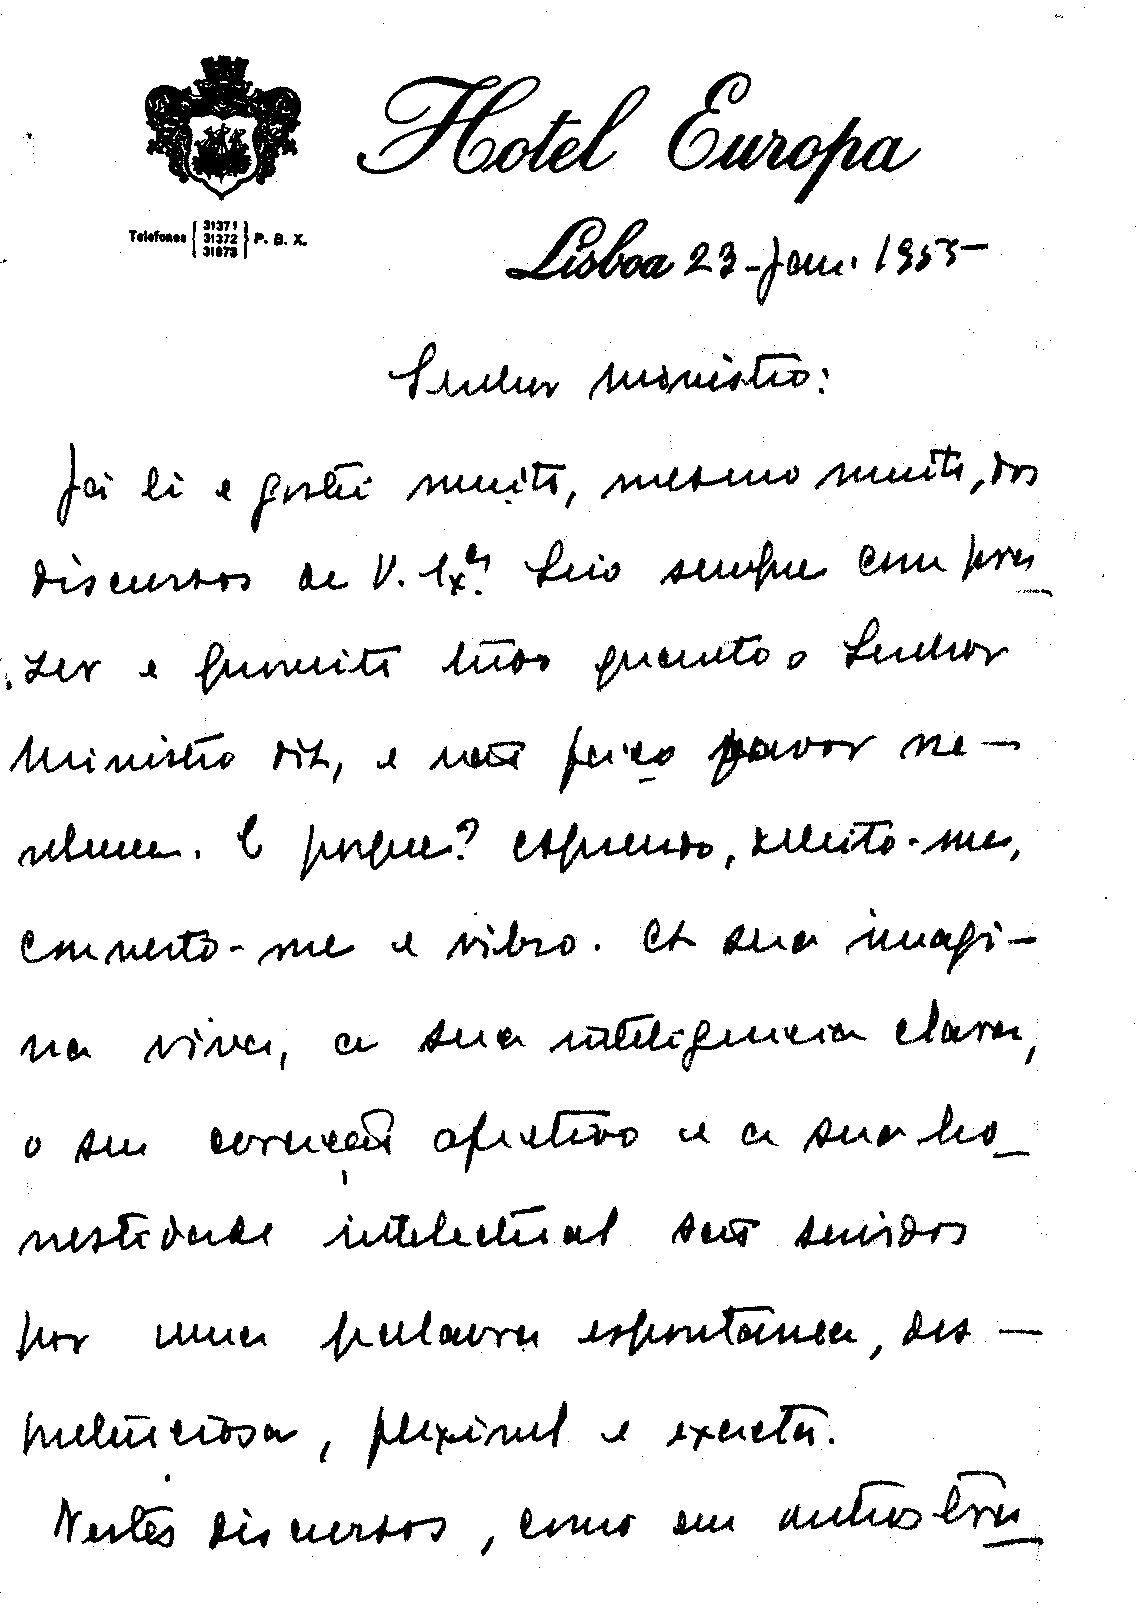 Hotel Europa
Telefones { 31371 31372 31373 } P. B. X.
Lisboa 23-Jan. 1955-
Senhor Ministro:
Já li e gostei muito, mesmo muito, dos
discursos de V. Exª. Leio sempre com pra
zer e proveito tudo quanto o Senhor
Ministro diz, e não faço favor ne-
nhum. E porque? Aprendo, deleito-me,
converto-me e vibro. A sua imagi-
na viva, a sua inteligencia clara,
o seu coração afectivo e a sua ho_
nestidade intelectual são servidos
por uma palavra espontânea, des-
pretenciosa, flexivel e exacta.
Nestes discursos, como em outros tra_